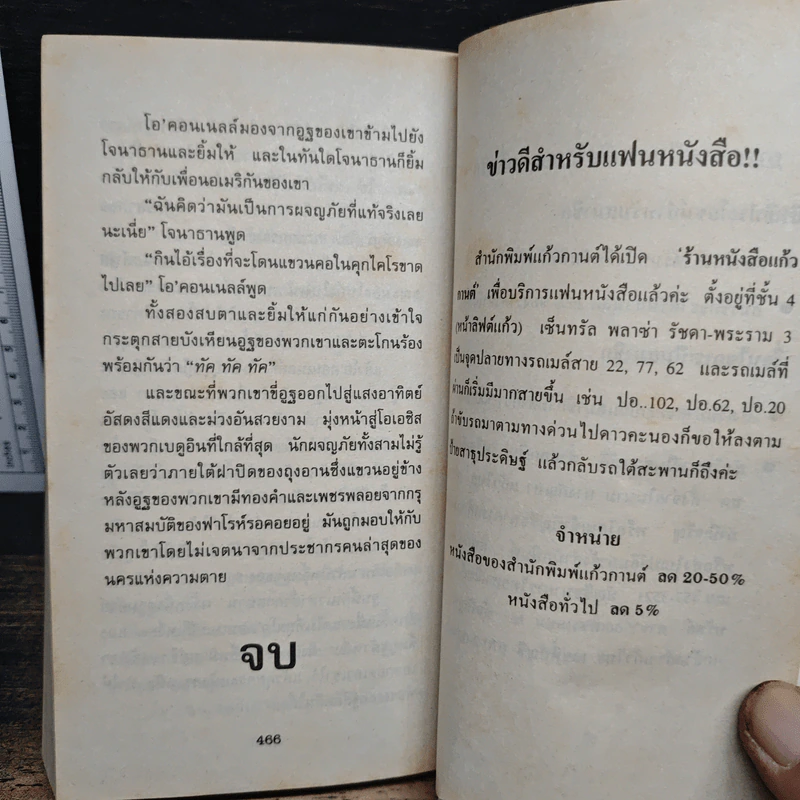 โอ'คอนเนลล์มองจากอูฐของเขาข้ามไปยัง
โจนาธานและยิ้มให้ และในทันใดโจนาธานก็ยิ้ม
กลับให้กับเพื่อนอเมริกันของเขา
“ฉันคิดว่ามันเป็นการผจญภัยที่แท้จริงเลย
นะเนี่ย” โจนาธานพูด
“กินไอ้เรื่องที่จะโดนแขวนคอในคุกไคโรขาด
ไปเลย” โอ'คอนเนลล์พูด
ทั้งสองสบตาและยิ้มให้แก่กันอย่างเข้าใจ
กระตุกสายบังเหียนอูฐของพวกเขาและตะโกนร้อง
พร้อมกันว่า “ทัค ทัค ทัค”
และขณะที่พวกเขาขี่อูฐออกไปสู่แสงอาทิตย์
อัสดงสีแดงและม่วงอันสวยงาม มุ่งหน้าสู่โอเอซิส
ของพวกเบดูอินที่ใกล้ที่สุด นักผจญภัยทั้งสามไม่รู้
ตัวเลยว่าภายใต้ฝาปิดของถุงอานซึ่งแขวนอยู่ข้าง
หลังอูฐของพวกเขามีทองคำและเพชรพลอยจากกรุ
มหาสมบัติของฟาโรห์รอคอยอยู่ มันถูกมอบให้กับ
พวกเขาโดยไม่เจตนาจากประชากรคนล่าสุดของ
นครแห่งความตาย
จบ
466
ข่าวดีสำหรับแฟนหนังสือ!!
สำนักพิมพ์แก้วกานต์ได้เปิด 'ร้านหนังสือแก้ว
กานต์' เพื่อบริการแฟนหนังสือแล้วค่ะ ตั้งอยู่ที่ชั้น 4
(หน้าลิฟต์แก้ว) เซ็นทรัล พลาซ่า รัชดา-พระราม 3
เป็นจุดปลายทางรถเมล์สาย 22, 77, 62 และรถเมล์ที่
ผ่านก็เริ่มมีมากสายขึ้น เช่น ปอ..102, ปอ.62, ปอ.20
ถ้าขับรถมาตามทางด่วนไปดาวคะนองก็ขอให้ลงตาม
ป้ายสาธุประดิษฐ์ แล้วกลับรถใต้สะพานก็ถึงค่ะ
จำหน่าย
หนังสือของสำนักพิมพ์แก้วกานต์ ลด 20-50%
หนังสือทั่วไป ลด 5%